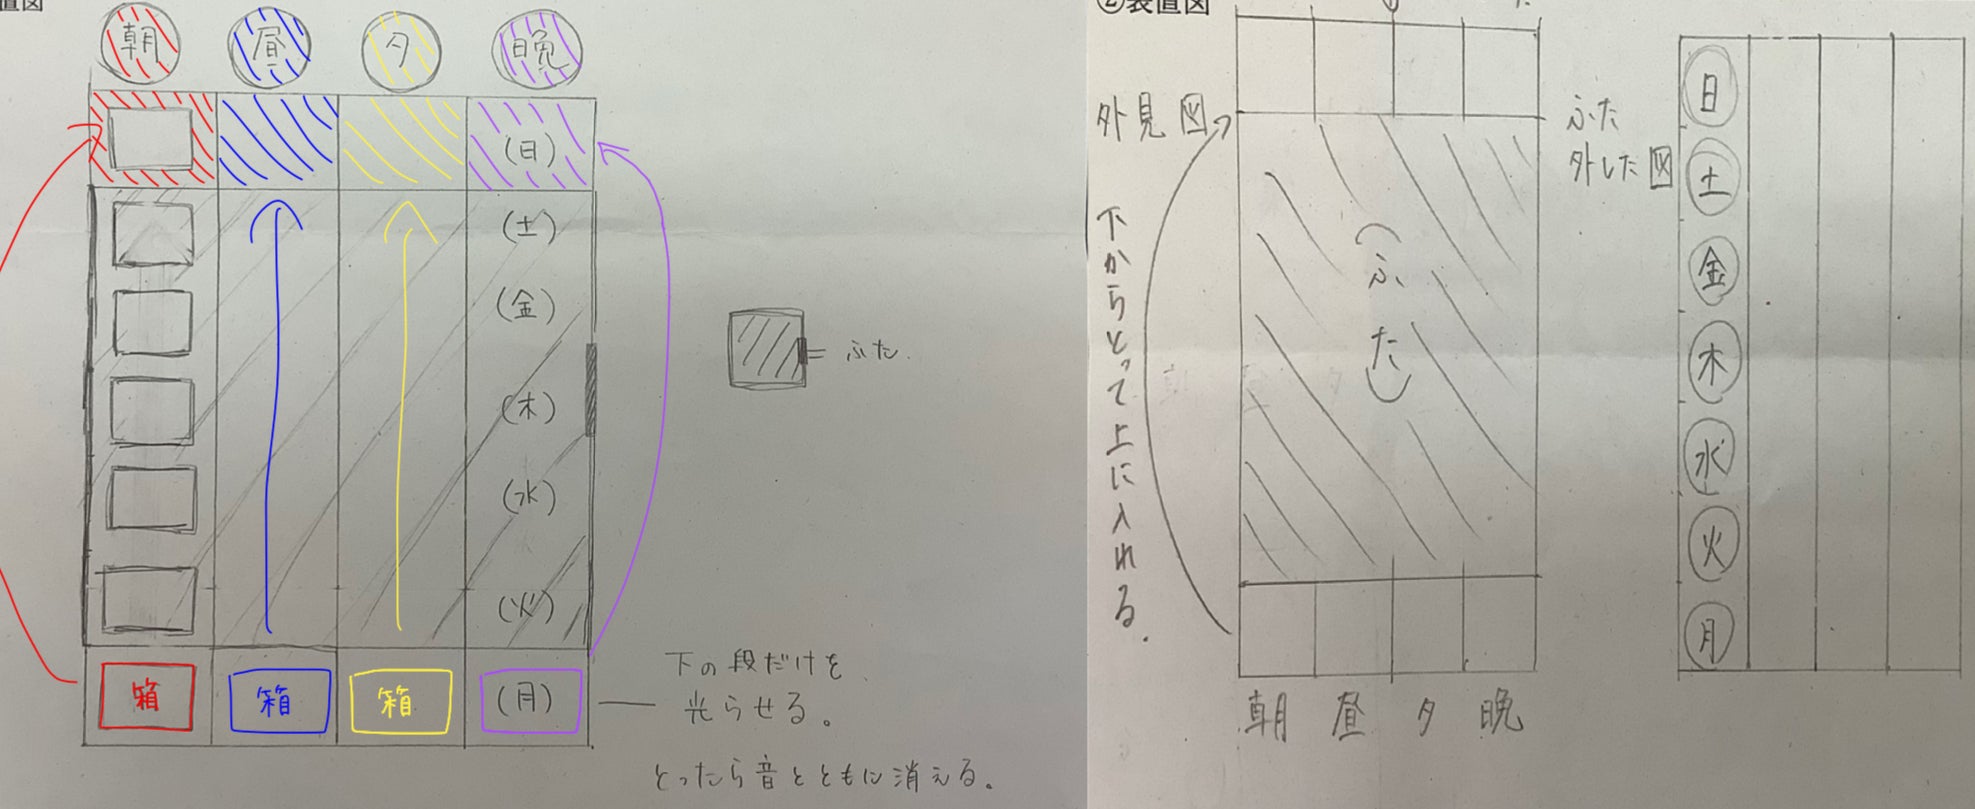 置図
朝 昼 夕 晩
(日)
(土)
(金)
(木)
(水)
(火)
箱 箱 箱 (月)
= ふた
下の段だけを
光らせる。
とったら音とともに消える。
②装置図
外見図
下からとって上に入れる.
(ふた)
朝 昼 夕 晩
ふた
外した図
日
土
金
木
水
火
月